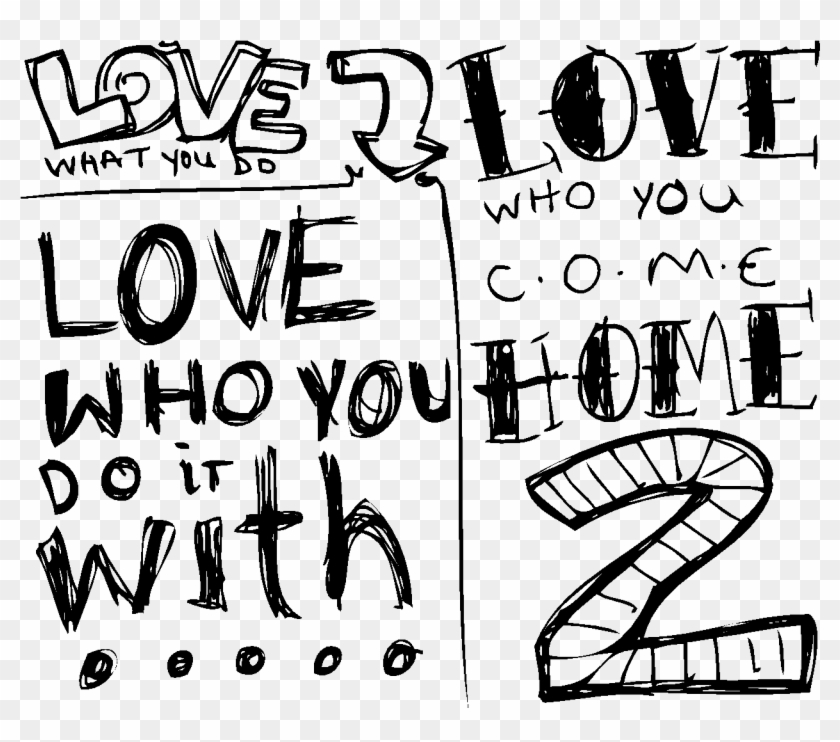 LOVE
WHAT YOU DO
LOVE
WHO YOU
DO iT
With
.....
LOVE
WHO YOU
C.O.M.E
HOME
2